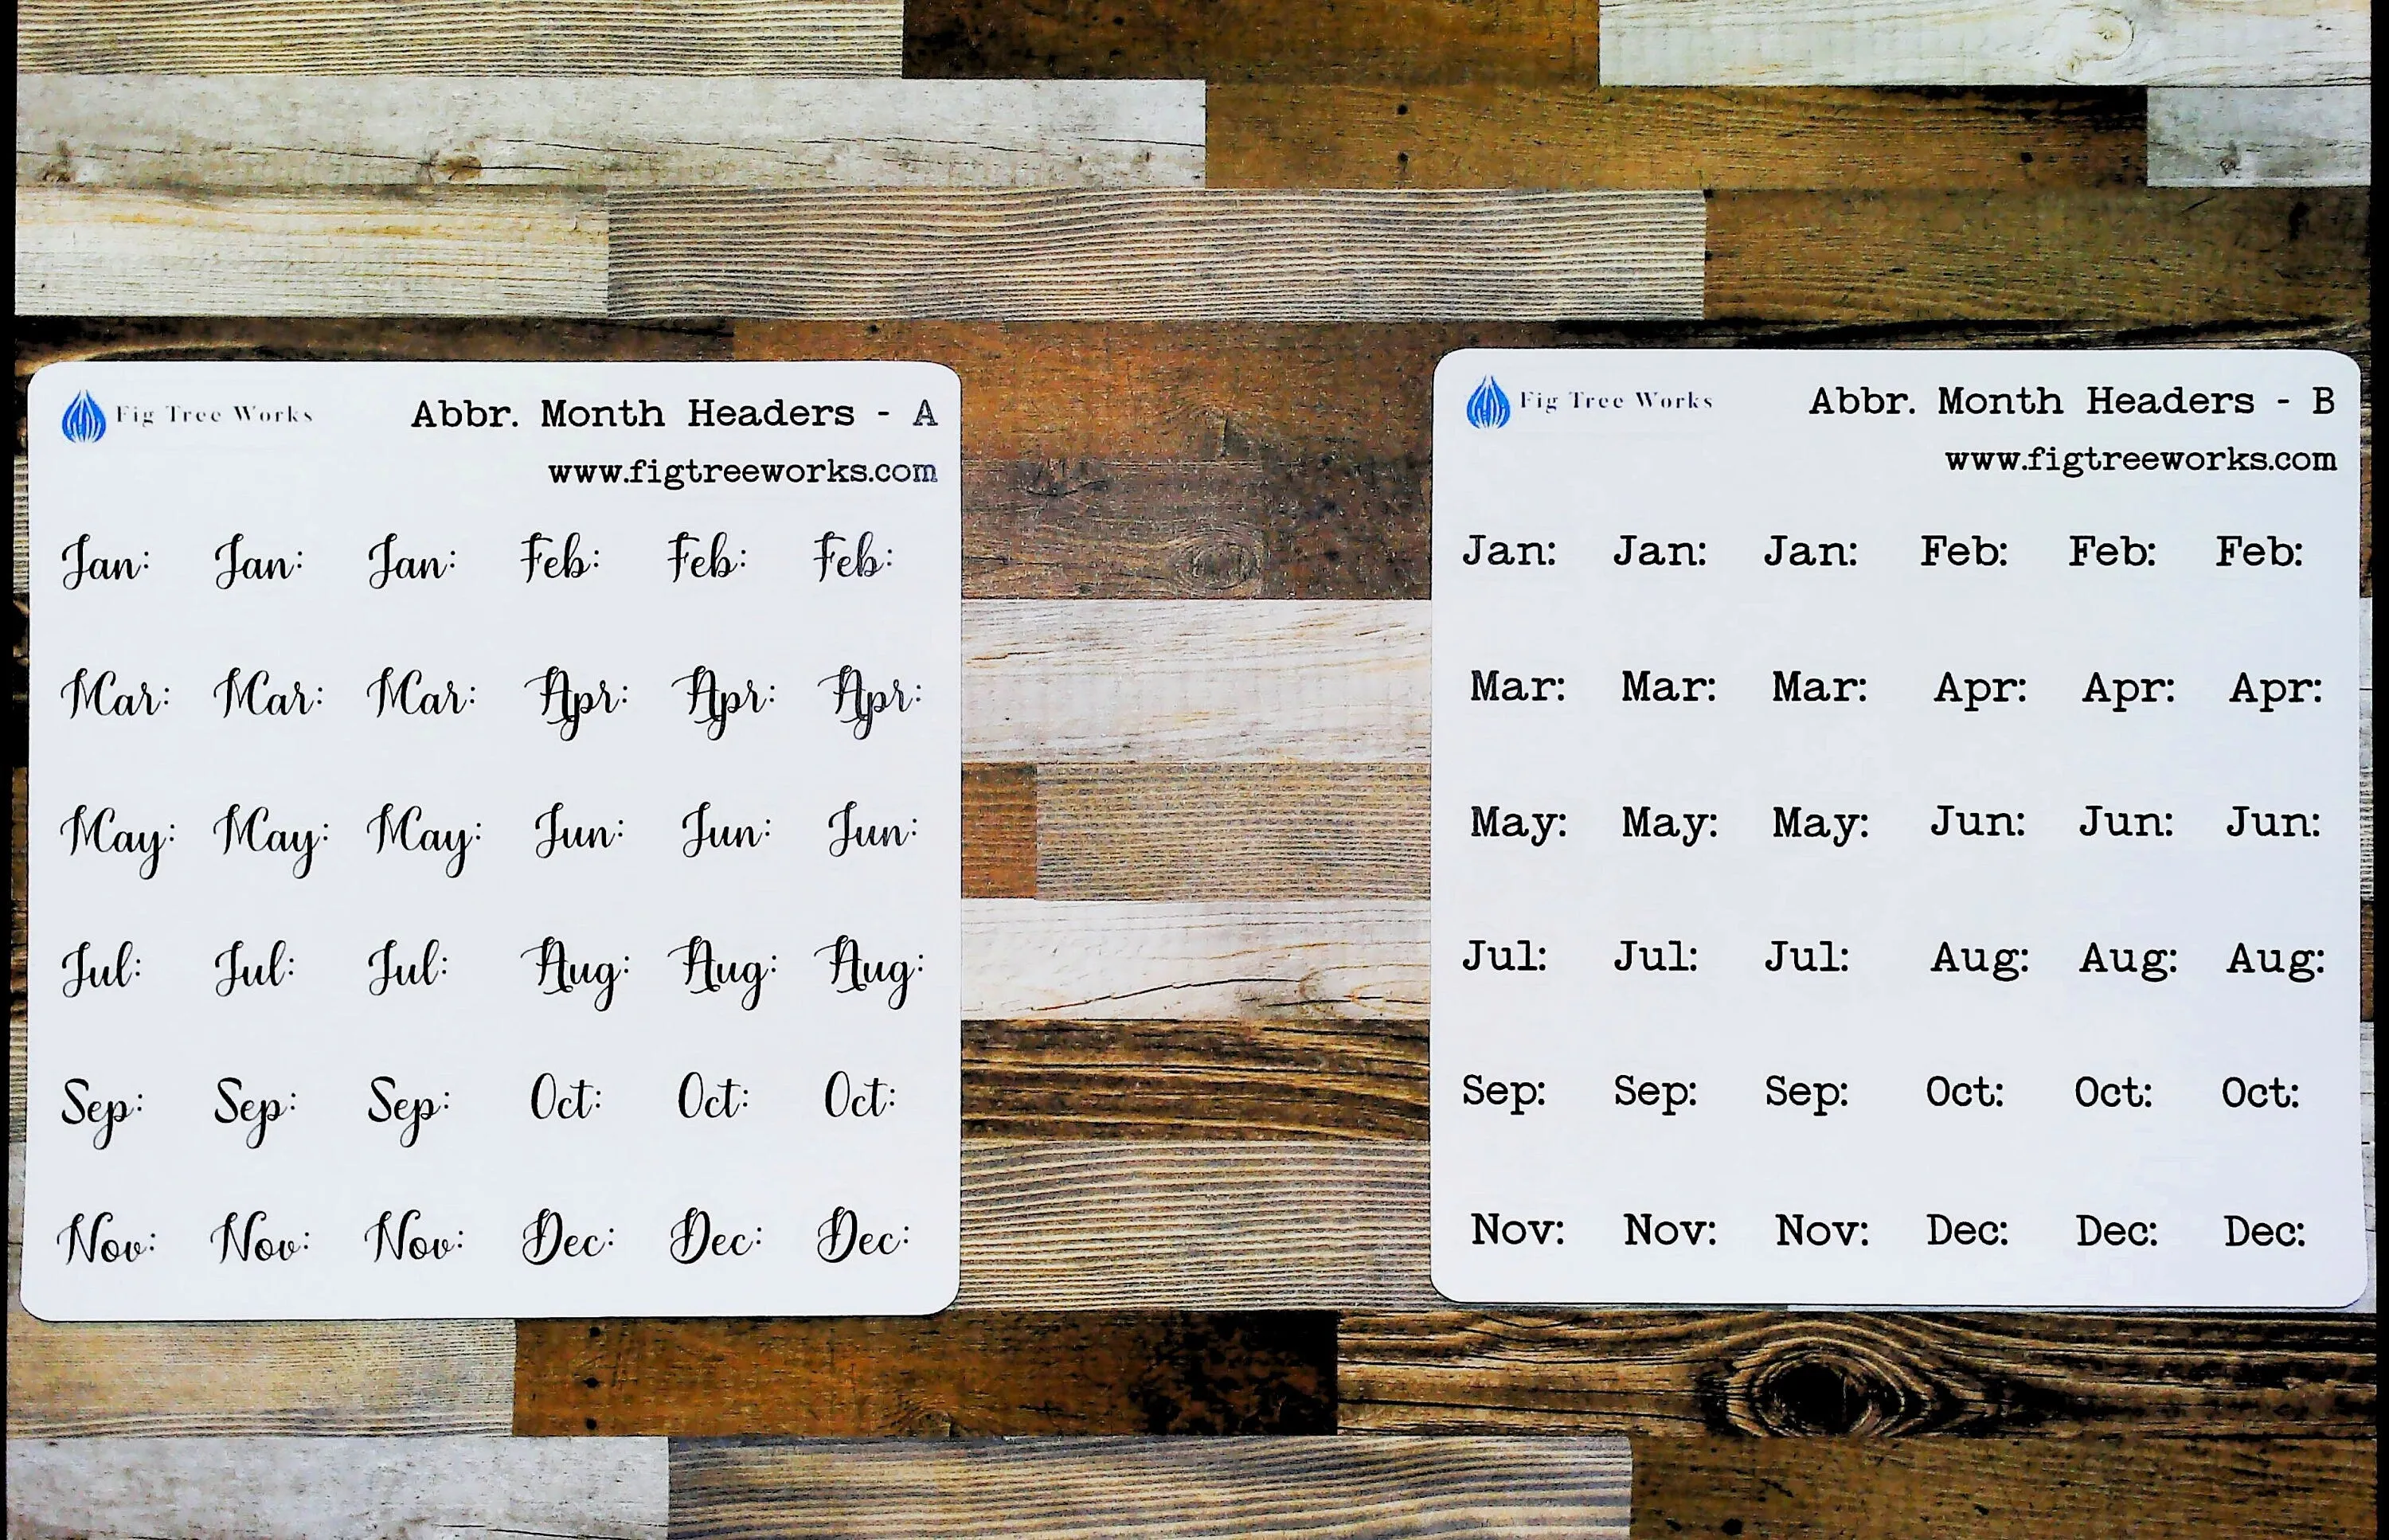 Fig Tree Works Abbr. Month Headers - A
www.figtreeworks.com
Jan: Jan: Jan: Feb: Feb: Feb:
Mar: Mar: Mar: Apr: Apr: Apr:
May: May: May: Jun: Jun: Jun:
Jul: Jul: Jul: Aug: Aug: Aug:
Sep: Sep: Sep: Oct: Oct: Oct:
Nov: Nov: Nov: Dec: Dec: Dec:
Fig Tree Works Abbr. Month Headers - B
www.figtreeworks.com
Jan: Jan: Jan: Feb: Feb: Feb:
Mar: Mar: Mar: Apr: Apr: Apr:
May: May: May: Jun: Jun: Jun:
Jul: Jul: Jul: Aug: Aug: Aug:
Sep: Sep: Sep: Oct: Oct: Oct:
Nov: Nov: Nov: Dec: Dec: Dec: